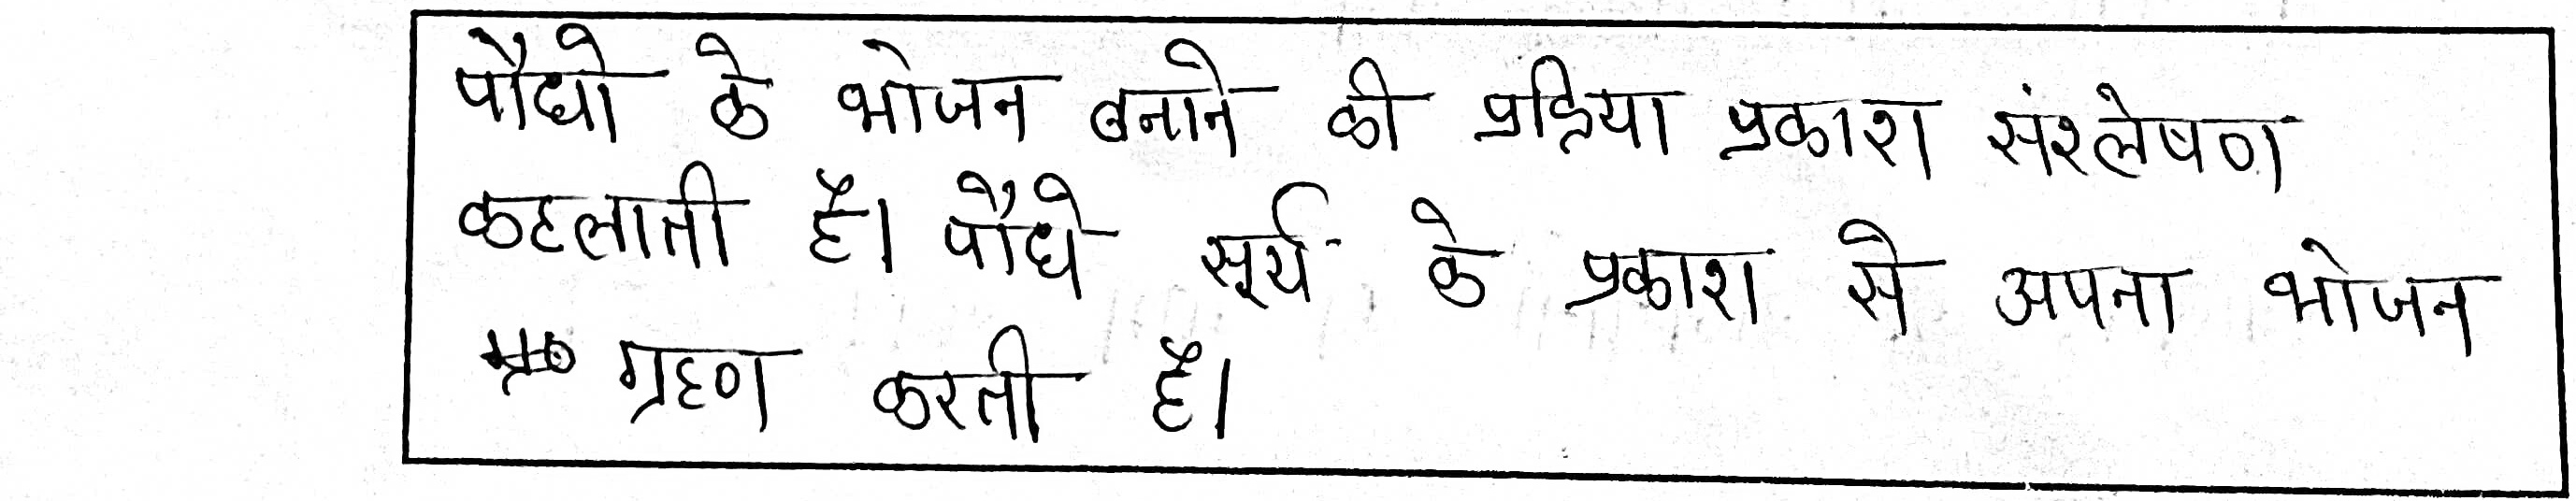 पौधो के भोजन बनाने की प्रक्रिया प्रकाश संश्लेषण
कहलाती है। पौधे सूर्य के प्रकाश से अपना भोजन
ग्रहण करती है।